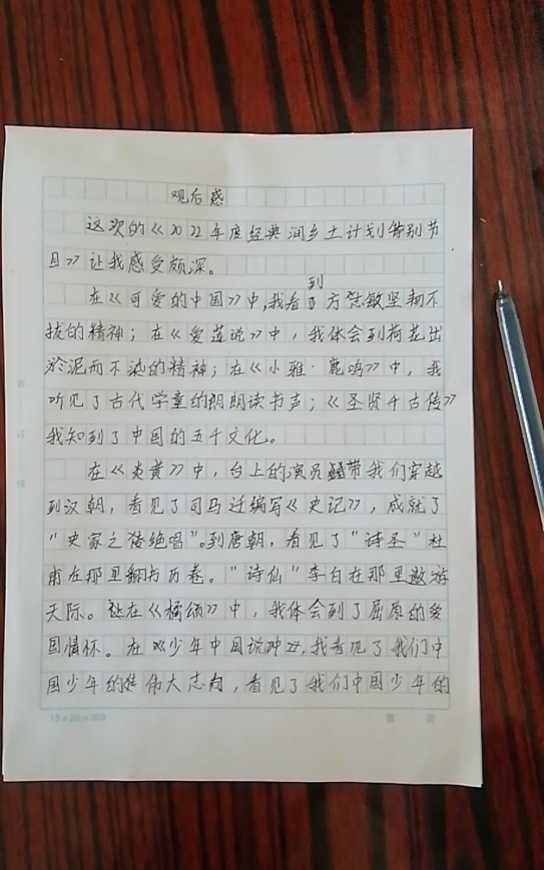 观后感
这次的《2022年度经典润乡土计划特别节
目》让我感受颇深。
在《可爱的中国》中,我看到了方志敏坚韧不
拔的精神；在《爱莲说》中，我体会到荷花出
淤泥而不染的精神；在《小雅·鹿鸣》中，我
听见了古代学童的朗朗读书声；《圣贤千古传》
我知到了中国的五千文化。
在《炎黄》中，台上的演员带我们穿越
到汉朝，看见了司马迁编写《史记》，成就了
"史家之绝唱"。到唐朝，看见了"诗圣"杜
甫在那里翻与历卷。"诗仙"李白在那里遨游
天际。在《橘颂》中，我体会到了屈原的爱
国情怀。在《少年中国说》中,我看见了我们中
国少年的伟大志向，看见了我们中国少年的
15×20=300